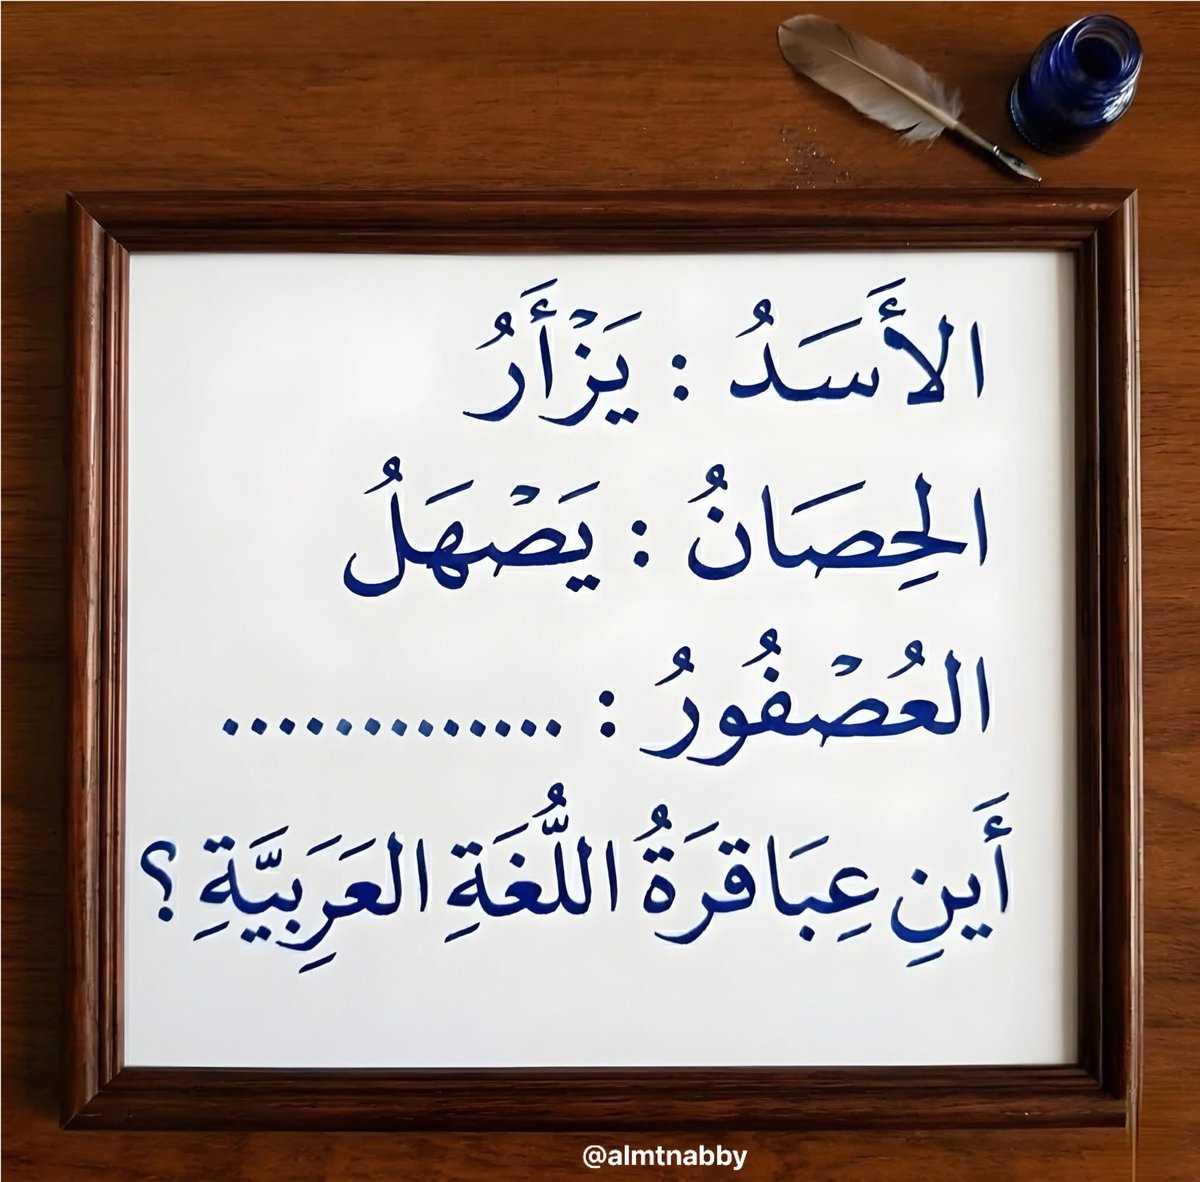 الأَسَدُ : يَزْأَرُ
الحِصَانُ : يَصْهَلُ
العُصْفُورُ : ..............
أَينِ عِبَاقرَةُ اللُّغَةِ العَرَبيَّةِ ؟
@almtnabby